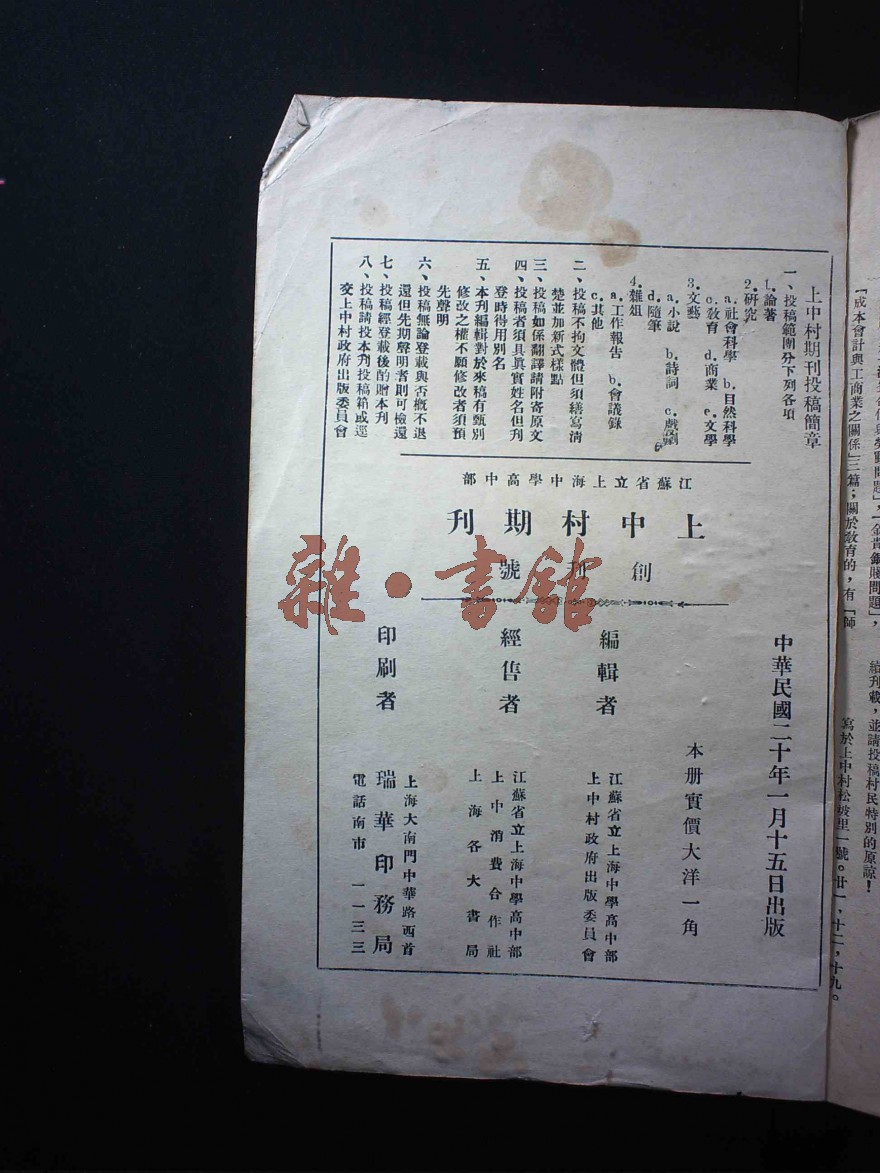 上中村期刊投稿簡章
一、投稿範圍分下列各項
1.論著
2.研究
a.社會科學 b.自然科學
c.敎育 d.商業 e.文學
3.文藝
a.小說 b.詩詞 c.戲劇
d.隨筆
4.雜俎
a.工作報告 b.會議錄
c.其他
二、投稿不拘文體但須繕寫淸
楚並加新式樣點
三、投稿如係翻譯請附寄原文
四、投稿者須具眞實姓名但刋
登時得用別名
五、本刋編輯對於來稿有甄別
修改之權不願修改者須預
先聲明
六、投稿無論登載與否槪不退
還但先期聲明者則可檢還
七、投稿經登載後酌贈本刋
八、投稿請投本刋投稿箱或逕
交上中村政府出版委員會
江蘇省立上海中學高中部
上中村期刊
創刊號
中華民國二十年一月十五日出版
本册實價大洋一角
編輯者
江蘇省立上海中學高中部
上中村政府出版委員會
經售者
江蘇省立上海中學高中部
上中消費合作社
上海各大書局
印刷者
上海大南門中華路西首
瑞華印務局
電話南市一一三三
雜·書館
續刋載,並請投稿村民特別的原諒!
「成本會計與工商業之關係」三篇;關於敎育的,有「師
寫於上中村松坡里一號。廿一,十二,十九。